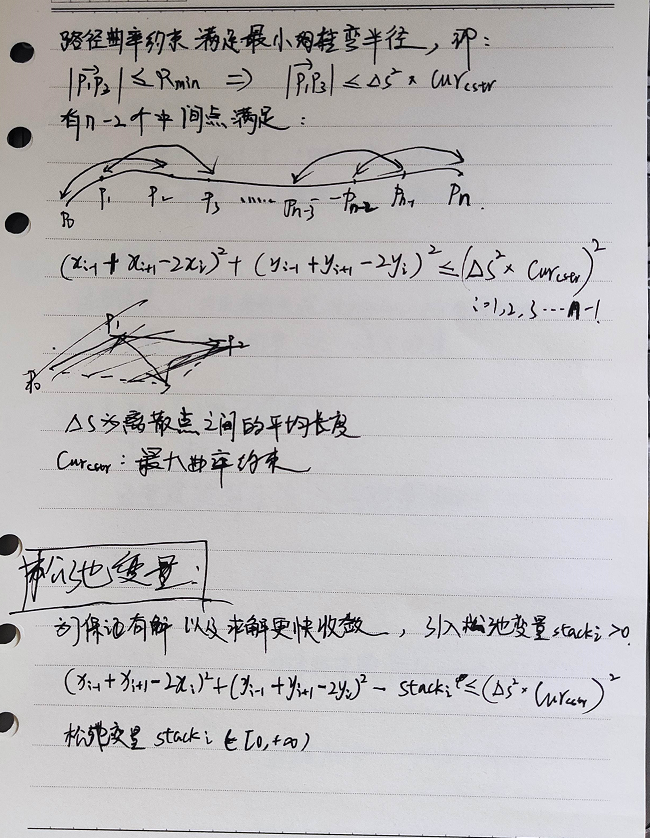 路径曲率约束 满足最小转弯半径，即：
|P₁P₂| ≤ Rmin ⇒ |P₁P₃| ≤ Δs² × Cur_cstr
有n-2个中间点满足：
P₀ P₁ P₂ P₃ ...... Pn-3 Pn-2 Pn-1 Pn
(xi-1 + xi+1 - 2xi)² + (yi-1 + yi+1 - 2yi)² ≤ (Δs² × Cur_cstr)²
i=1,2,3...n-1
P₁
P₀ P₂
3
Δs为离散点之间的平均长度
Cur_cstr：最大曲率约束
松弛变量：
为保证有解以及求解更快收敛，引入松弛变量stacki>0.
(xi-1 + xi+1 - 2xi)² + (yi-1 + yi+1 - 2yi)² - stacki ≤ (Δs² × Cur_cstr)²
松弛变量 stacki ∈ [0,+∞)